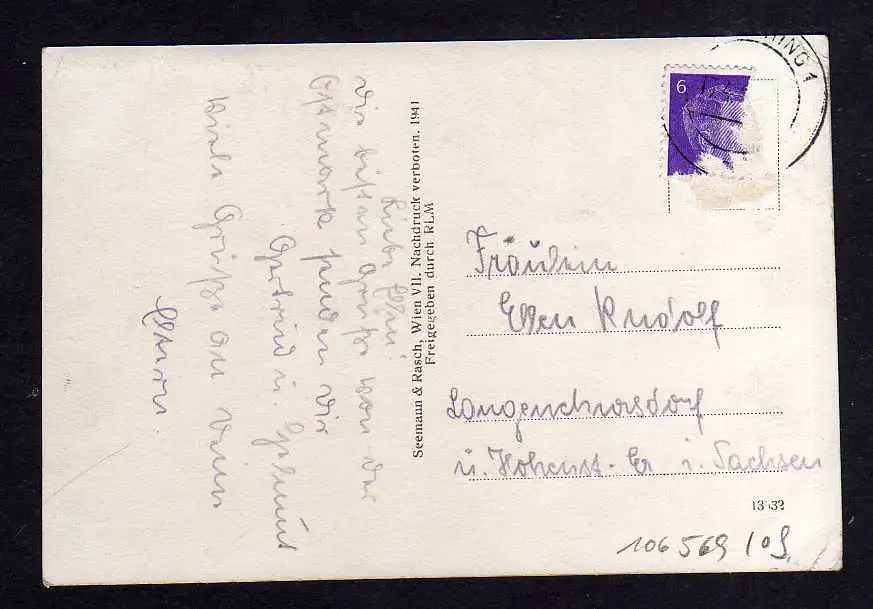 Liebe Elln!
Die besten Grüße von der
Ostmark senden dir
Gertrud u. Helmut
Viele Grüße an deine
Eltern.
Seemann & Rasch, Wien VII. Nachdruck verboten. 1941
Freigegeben durch RLM
6
ING 1
Fräulein
Ellen Rudolf
Langenchursdorf
ü. Hohenst. Er i. Sachsen
13532
106569 109